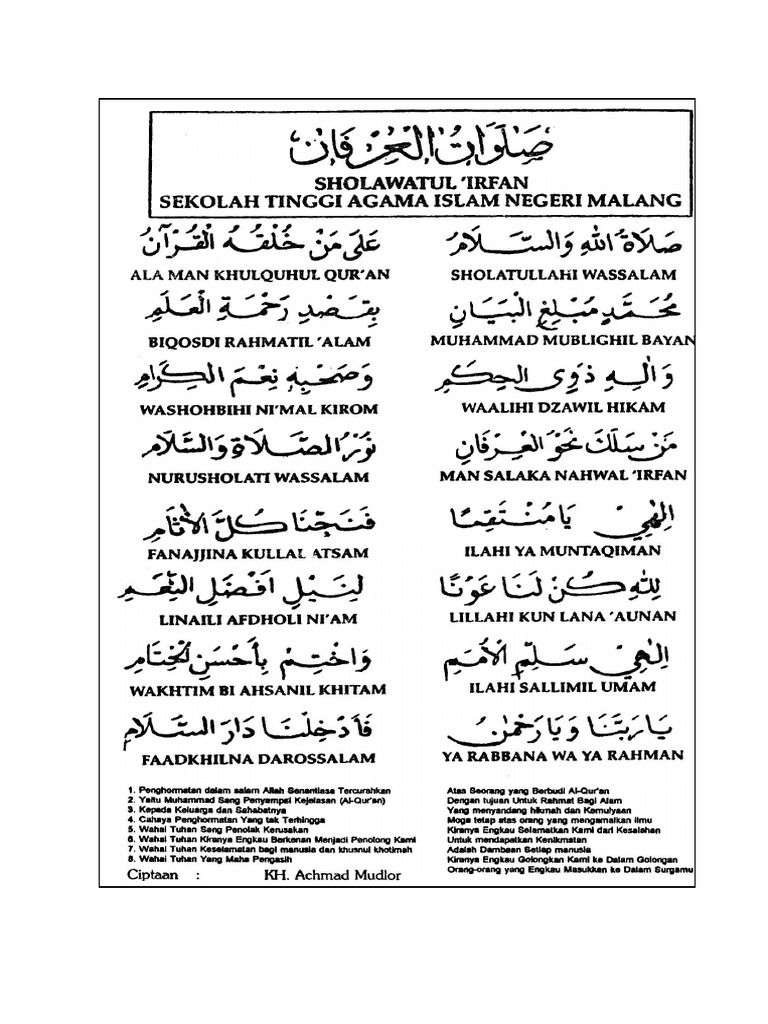 صَلَوَاتُ الْعِرْفَانْ
SHOLAWATUL 'IRFAN
SEKOLAH TINGGI AGAMA ISLAM NEGERI MALANG
صَلَاةُ اللهِ وَالسَّلَامُ
SHOLATULLAHI WASSALAM
عَلَى مَنْ خُلْقُهُ الْقُرْآنُ
ALA MAN KHULQUHUL QUR'AN
مُحَمَّدٍ مُبَلِّغِ الْبَيَانِ
MUHAMMAD MUBLIGHIL BAYAN
بِقَصْدِ رَحْمَةِ الْعَلَمِ
BIQOSDI RAHMATIL 'ALAM
وَالِهِ ذَوِى الحِكَمِ
WAALIHI DZAWIL HIKAM
وَصَحْبِهِ نِعْمَ الْكِرَامِ
WASHOHBIHI NI'MAL KIROM
مَنْ سَلَكَ نَحْوَ الْعِرْفَانِ
MAN SALAKA NAHWAL 'IRFAN
نُوْرُ الصَّلَاةِ وَالسَّلَامِ
NURUSHOLATI WASSALAM
اِلٰهِيْ يَا مُنْتَقِمًا
ILAHI YA MUNTAQIMAN
فَنَجِّنَا كُلَّ الْأَثَامِ
FANAJJINA KULLAL ATSAM
لِلّٰهِ كُنْ لَنَا عَوْنًا
LILLAHI KUN LANA 'AUNAN
لِنَيْلِ اَفْضَلِ النِّعَمِ
LINAILI AFDHOLI NI'AM
اِلٰهِيْ سَلِّمِ الْأُمَمِ
ILAHI SALLIMIL UMAM
وَاخْتِمْ بِأَحْسَنِ الْخِتَامِ
WAKHTIM BI AHSANIL KHITAM
يَا رَبَّنَا وَيَا رَحْمٰنُ
YA RABBANA WA YA RAHMAN
فَأَدْخِلْنَا دَارَ السَّلَامِ
FAADKHILNA DAROSSALAM
1. Penghormatan dalam salam Allah Senantiasa Tercurahkan
2. Yaitu Muhammad Sang Penyampai Kejelasan (Al-Qur'an)
3. Kepada Keluarga dan Sahabatnya
4. Cahaya Penghormatan Yang tak Terhingga
5. Wahai Tuhan Sang Penolak Kerusakan
6. Wahai Tuhan Kiranya Engkau Berkenan Menjadi Penolong Kami
7. Wahai Tuhan Keselamatan bagi manusia dan khusnul khotimah
8. Wahai Tuhan Yang Maha Pengasih
Atas Seorang yang Berbudi Al-Qur'an
Dengan tujuan Untuk Rahmat Bagi Alam
Yang menyandang hikmah dan Kemulyaan
Moga tetap atas orang yang mengamalkan ilmu
Kiranya Engkau Selamatkan Kami dari Kesalahan
Untuk mendapatkan Kenikmatan
Adalah Dambaan Setiap manusia
Kiranya Engkau Golongkan Kami ke Dalam Golongan
Orang-orang yang Engkau Masukkan ke Dalam Surgamu
Ciptaan : KH. Achmad Mudlor